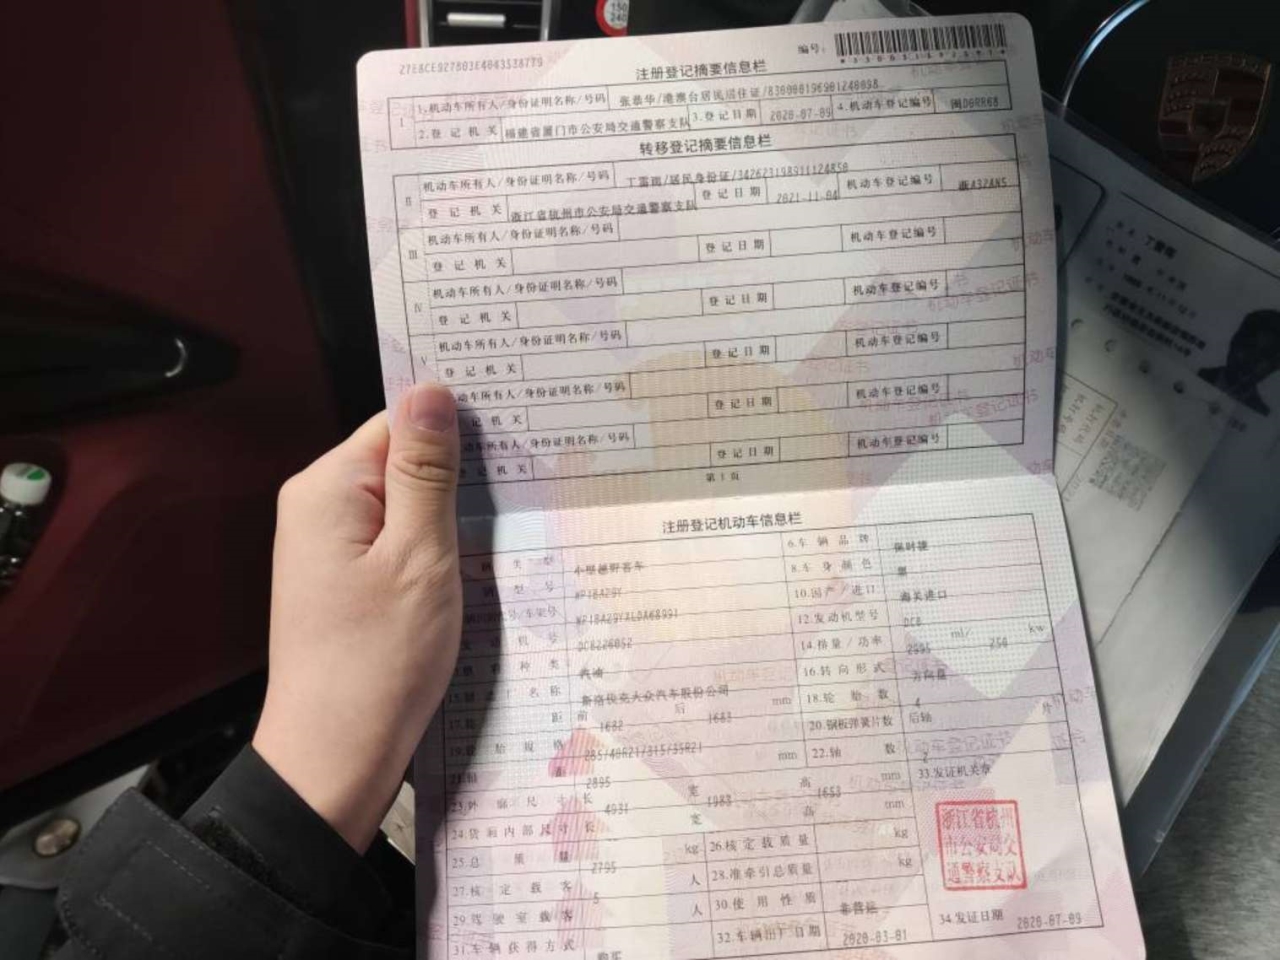 27E8CE927803E4043538779
编号：
注册登记摘要信息栏
1.机动车所有人/身份证明名称/号码 张恭华/港澳台居民居住证/830000196901240098
2.登记机关 福建省厦门市公安局交通警察支队 3.登记日期 2020-07-09 4.机动车登记编号 闽D0RR68
转移登记摘要信息栏
II 机动车所有人/身份证明名称/号码 /居民身份证/342623198911124850
登记机关 浙江省杭州市公安局交通警察支队 登记日期 2021-11-04 机动车登记编号 浙A3ZAN5
III 机动车所有人/身份证明名称/号码
登记机关 登记日期 机动车登记编号
IV 机动车所有人/身份证明名称/号码
登记机关 登记日期 机动车登记编号
V 机动车所有人/身份证明名称/号码
登记机关 登记日期 机动车登记编号
动车所有人/身份证明名称/号码
记机关 登记日期 机动车登记编号
动车所有人/身份证明名称/号码
登记机关 登记日期 机动车登记编号
第1页
注册登记机动车信息栏
类型 小型越野客车 6.车辆品牌 保时捷
型号 WP1BA29Y 8.车身颜色 黑
/车架号 WP1BA29YXLDA68991 10.国产/进口 海关进口
机号 DCB226052 12.发动机型号 DCB
种类 汽油 14.排量/功率 2995 ml/ 250 kw
名称 斯洛伐克大众汽车股份公司 16.转向形式 方向盘
17.轮距 前 1682 后 1683 mm 18.轮胎数 4
19.轮胎规格 285/40R21/315/35R21 20.钢板弹簧片数 后轴 片
21.轴距 2895 mm 22.轴数 2
23.外廓尺寸 长 4931 宽 1983 高 1653 mm 33.发证机关章
24.货厢内部尺寸 长 宽 高 mm
25.总质量 2795 kg 26.核定载质量 kg
27.核定载客 5 人 28.准牵引总质量 kg
29.驾驶室载客 人 30.使用性质 非营运
31.车辆获得方式 购买 32.车辆出厂日期 2020-03-01 34.发证日期 2020-07-09
浙江省杭州
市公安局交
通警察支队